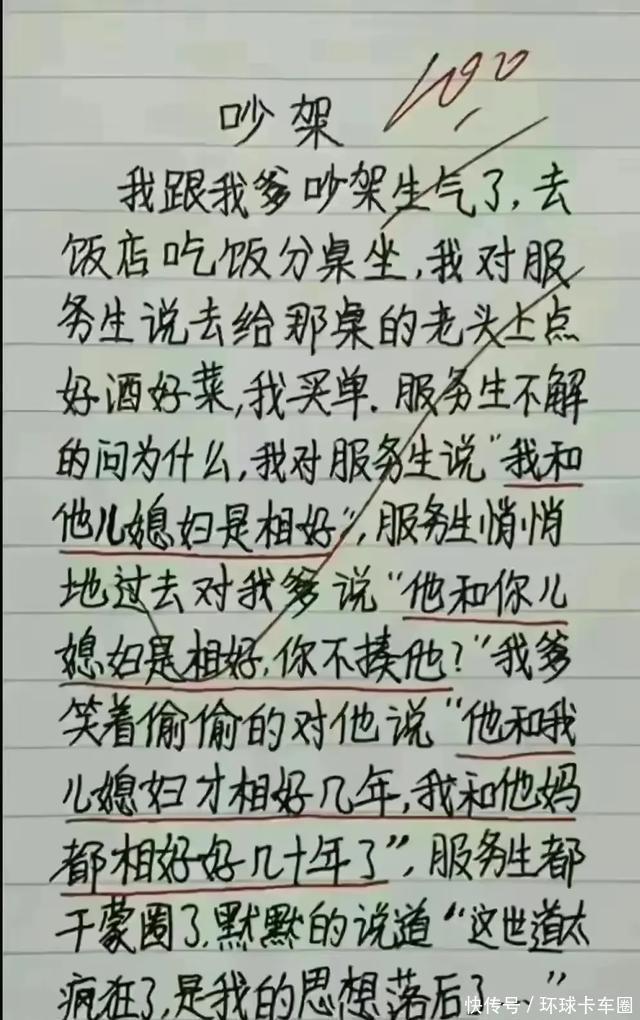 100
吵架
我跟我爹吵架生气了,去
饭店吃饭分桌坐,我对服
务生说去给那桌的老头上点
好酒好菜,我买单.服务生不解
的问为什么,我对服务生说“我和
他儿媳妇是相好”,服务生悄悄
地过去对我爹说“他和你儿
媳妇是相好,你不揍他?”我爹
笑着偷偷的对他说“他和我
儿媳妇才相好几年,我和他妈
都相好好几十年了”,服务生都
干蒙圈了,默默的说道“这世道太
疯狂了,是我的思想落后了...”
快传号/环球卡车圈